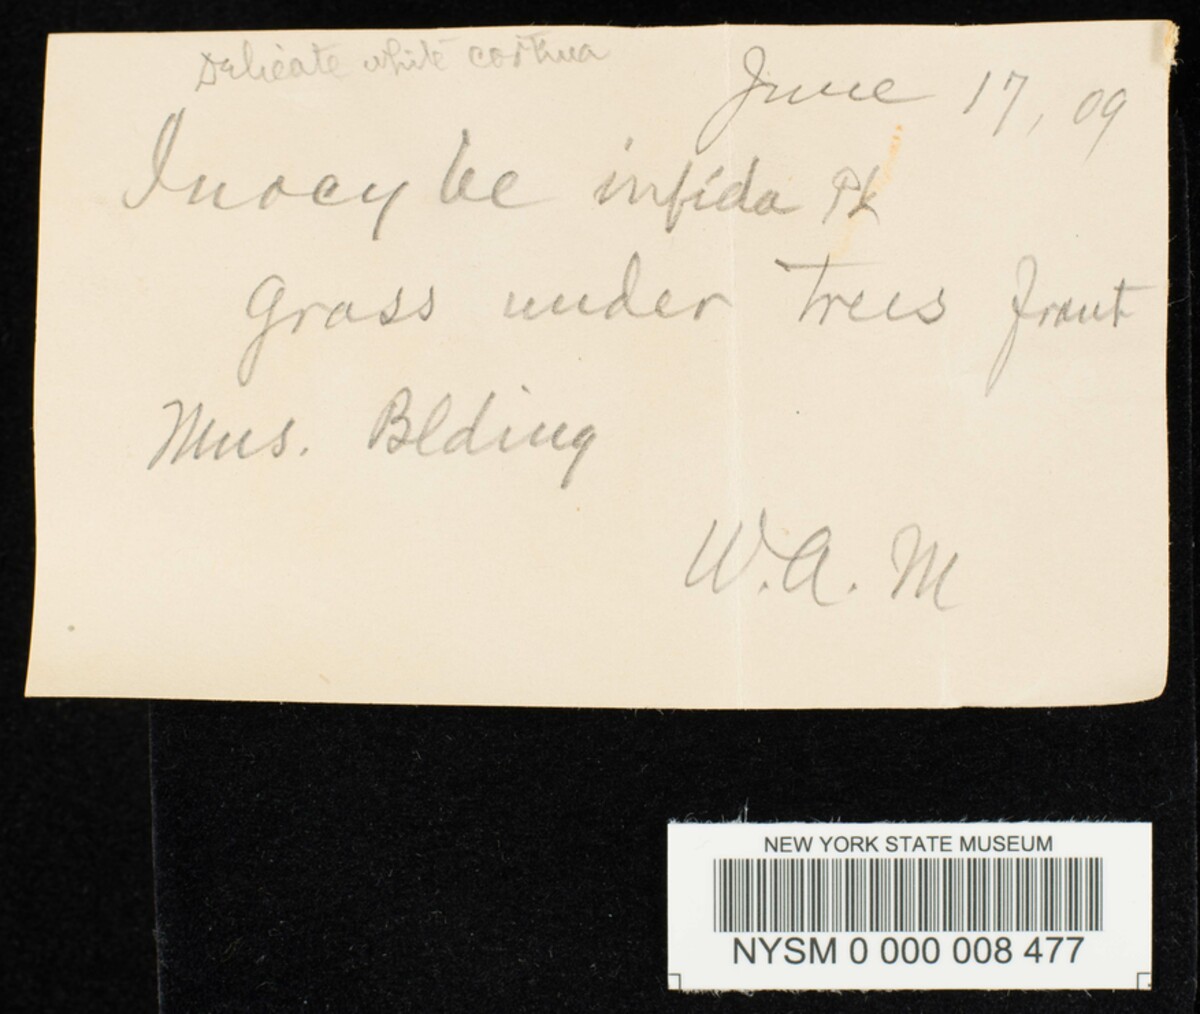 Delicate white cortina
June 17, 09
Inocybe infida Pk
Grass under trees front
Mus. Blding
W. A. M
NEW YORK STATE MUSEUM
NYSM 0 000 008 477